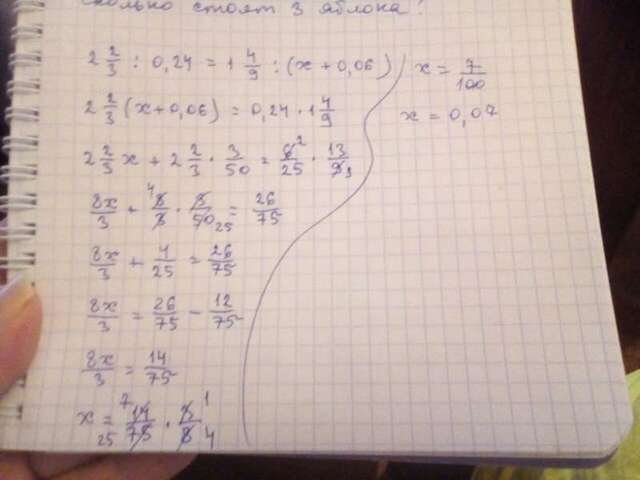 сколько стоят 3 яблока?
2 2/3 : 0,24 = 1 4/9 : (x + 0,06)
2 2/3 (x + 0,06) = 0,24 · 1 4/9
2 2/3 x + 2 2/3 · 3/50 = 6/25 · 13/9
8x/3 + 8/3 · 3/50 = 26/75
8x/3 + 4/25 = 26/75
8x/3 = 26/75 - 12/75
8x/3 = 14/75
x = 14/75 · 3/8
x = 7/100
x = 0,07